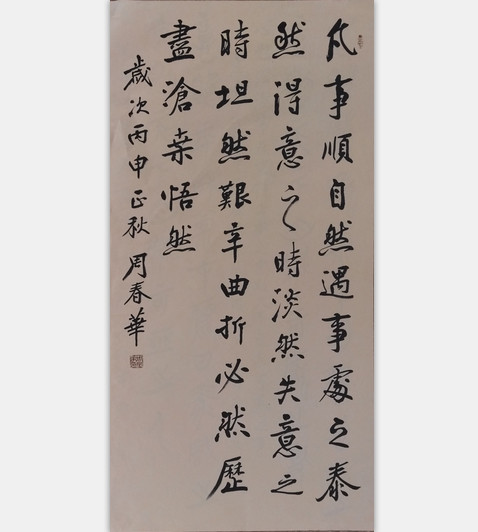 凡事順自然遇事處之泰
然得意之時淡然失意之
時坦然艱辛曲折必然歷
盡滄桒悟然
歲次丙申正秋周春華